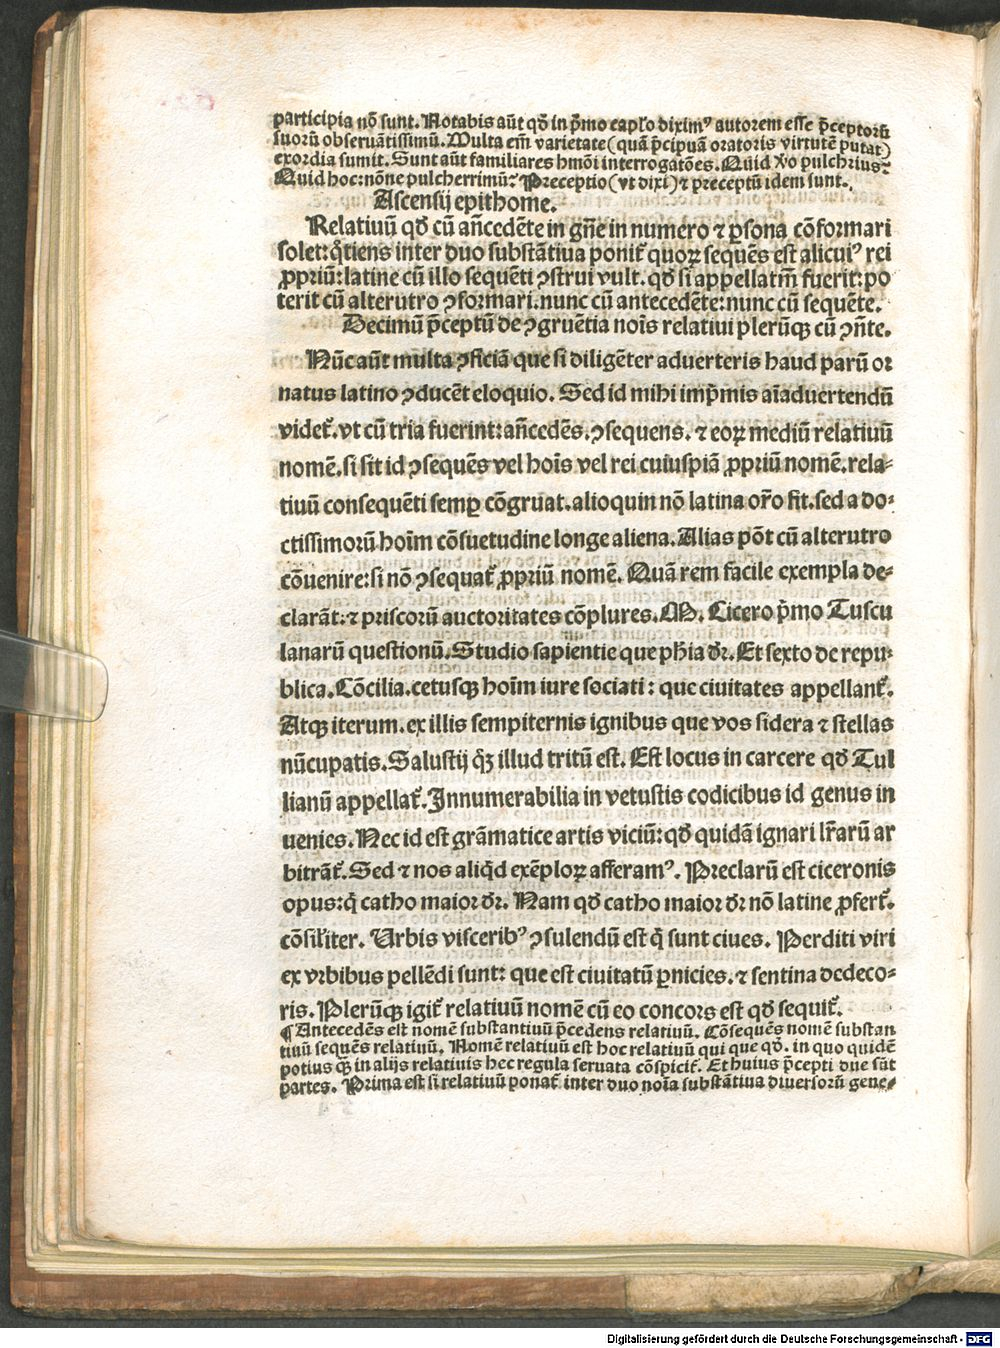 participia nō sunt. Notabis aūt qđ in p̄mo cap̄lo diximꝰ autorem esse p̄ceptorū
suorū obseruātissimū. Multa em̄ varietate (quā p̄cipuā oratoris virtutē putat)
exordia sumit. Sunt aūt familiares hmōi interrogatōes. Quid ꝟo pulchrius?
Quid hoc: nōne pulcherrimū? Preceptio (vt dixi) ⁊ preceptū idem sunt.
Ascensij epithome.
Relatiuū qđ cū an̄cedēte in gn̄e in numero ⁊ ꝑsona cōformari
solet: q̄tiens inter duo substātiua ponit᷑ quoꝝ sequēs est alicuiꝰ rei
ꝓpriū: latine cū illo sequēti ꝯstrui vult. qđ si appellatm̄ fuerit: po
terit cū alterutro ꝯformari. nunc cū antecedēte: nunc cū sequēte.
Decimū p̄ceptū de ꝯgruētia nois̄ relatiui plerūqꝫ cū ꝯn̄te.
Nūc aūt multa ꝯficiā que si diligēter aduerteris haud parū or
natus latino ꝯducēt eloquio. Sed id mihi imp̄mis aīaduertendū
videt᷑. vt cū tria fuerint: an̄cedēs. ꝯsequens. ⁊ eoꝝ mediū relatiuū
nomē. si sit id ꝯsequēs vel hoīs vel rei cuiuspiā ꝓpriū nomē. rela-
tiuū consequēti semꝑ cōgruat. alioquin nō latina or̄o fit. sed a do-
ctissimorū hoīm cōsuetudine longe aliena. Alias pōt cū alterutro
cōuenire: si nō ꝯsequat᷑ ꝓpriū nomē. Quā rem facile exempla de-
clarāt: ⁊ priscorū auctoritates cōplures. M. Cicero p̄mo Tuscu
lanarū questionū. Studio sapientie que ph̄ia dr̄. Et sexto de repu-
blica. Cōcilia. cetusqꝫ hoīm iure sociati: que ciuitates appellant᷑.
Atqꝫ iterum. ex illis sempiternis ignibus que vos sidera ⁊ stellas
nūcupatis. Salustij qꝫ illud tritū est. Est locus in carcere qđ Tul
lianū appellat᷑. Innumerabilia in vetustis codicibus id genus in
uenies. Nec id est grāmatice artis viciū: qđ quidā ignari lr̄arū ar
bitrāt᷑. Sed ⁊ nos aliqd̄ exēploꝝ afferamꝰ. Preclarū est ciceronis
opus: q̄ catho maior dr̄. Nam qđ catho maior dr̄ nō latine ꝓfert᷑.
cōsil̄iter. Urbis visceribꝰ ꝯsulendū est q̄ sunt ciues. Perditi viri
ex vrbibus pellēdi sunt: que est ciuitatū ꝑnicies. ⁊ sentina dedeco-
ris. Plerūqꝫ igit᷑ relatiuū nomē cū eo concors est qđ sequit᷑.
¶ Antecedēs est nomē substantiuū p̄cedens relatiuū. Cōsequēs nomē substan
tiuū sequēs relatiuū. Nomē relatiuū est hoc relatiuū qui que qđ. in quo quidē
potius qꝫ in alijs relatiuis hec regula seruata cōspicit᷑. Et huius p̄cepti due sūt
partes. Prima est si relatiuū ponat᷑ inter duo noīa substātiua diuersorū gene-
Digitalisierung gefördert durch die Deutsche Forschungsgemeinschaft - DFG